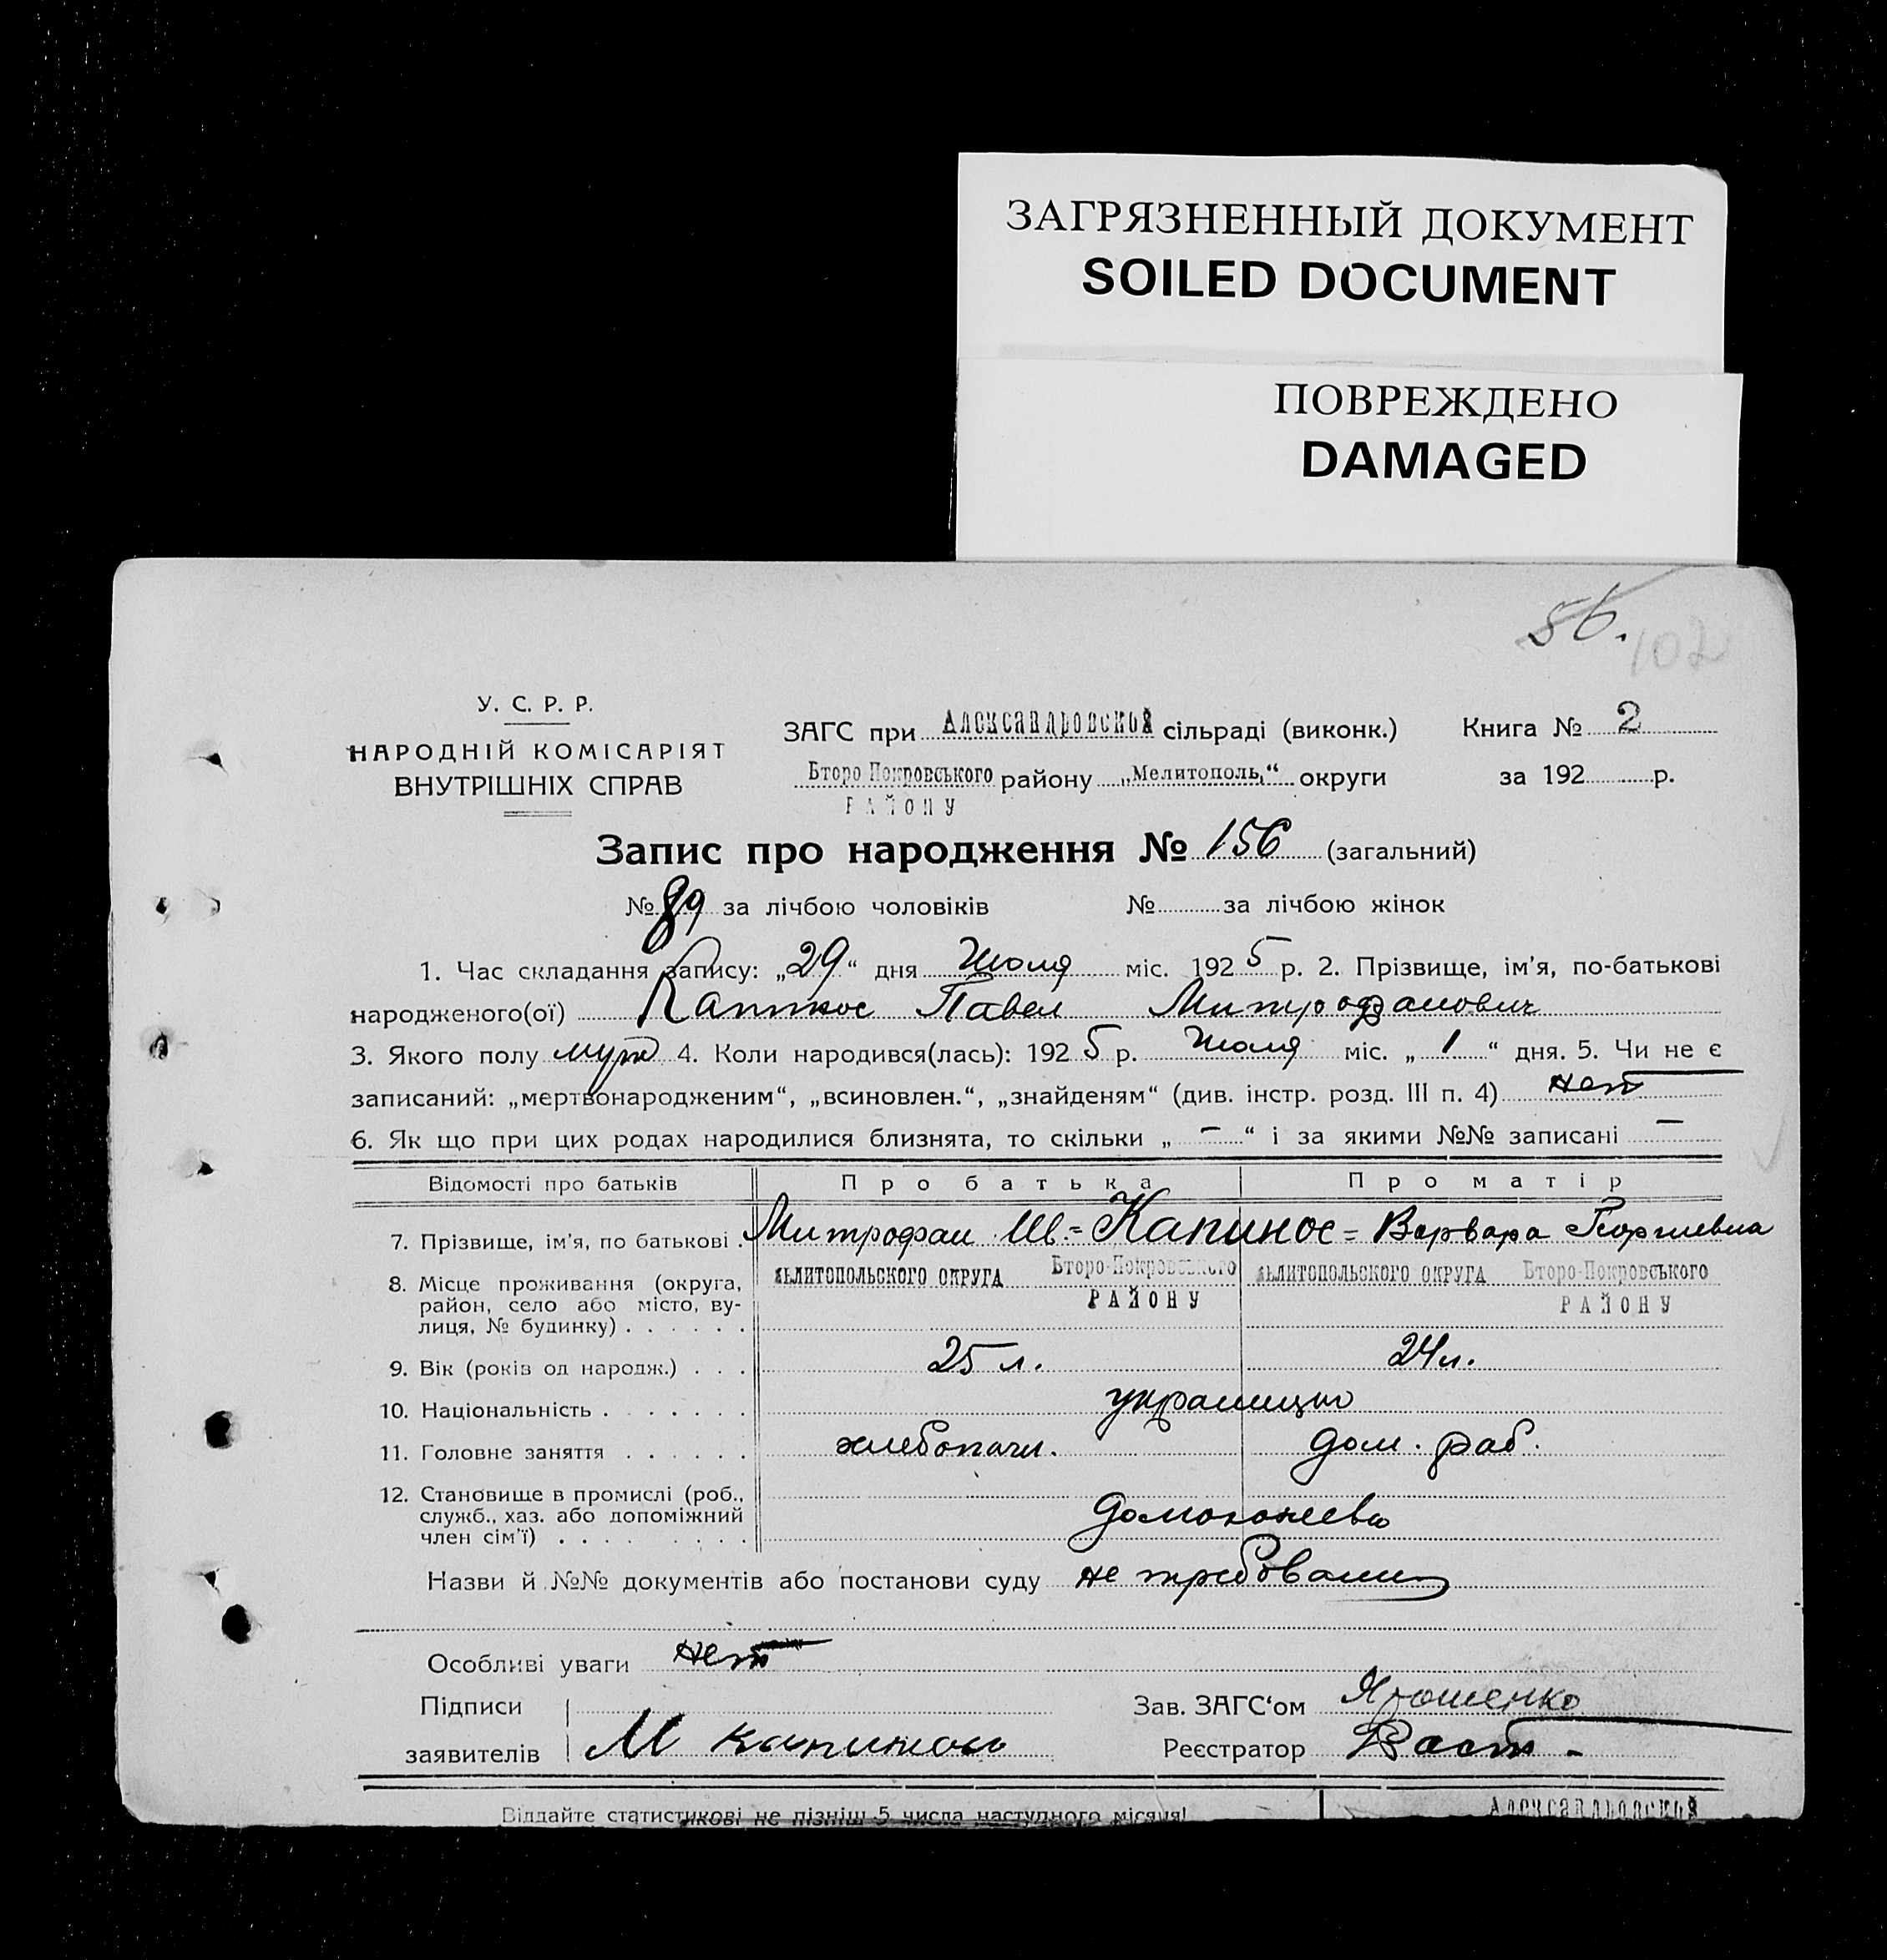 ЗАГРЯЗНЕННЫЙ ДОКУМЕНТ
SOILED DOCUMENT
ПОВРЕЖДЕНО
DAMAGED
56.
102
У. С. Р. Р.
НАРОДНІЙ КОМІСАРІЯТ
ВНУТРІШНІХ СПРАВ
ЗАГС при Александровской сільраді (виконк.) Книга № 2
Второ Покровського району „Мелитополь“ округи за 192 р.
РАЙОНУ
Запис про народження № 156 (загальний)
№ 89 за лічбою чоловіків № за лічбою жінок
1. Час складання запису: „29“ дня Июля міс. 1925 р. 2. Прізвище, ім’я, по-батькові
народженого(ої) Капинос Павел Митрофанович
3. Якого полу муж 4. Коли народився(лась): 1925 р. Июля міс. „1“ дня. 5. Чи не є
записаний: „мертвонародженим“, „всиновлен.“, „знайденям“ (див. інстр. розд. III п. 4) нет
6. Як що при цих родах народилися близнята, то скільки „ — “ і за якими №№ записані —
Відомості про батьків Про батька Про матір
7. Прізвище, ім’я, по батькові . Митрофан Ив.= Капинос = Варвара Георгиевна
8. Місце проживання (округа, район, село або місто, вулиця, № будинку) . . . . . .
МЕЛИТОПОЛЬСКОГО ОКРУГА Второ-Покровського РАЙОНУ МЕЛИТОПОЛЬСКОГО ОКРУГА Второ-Покровського РАЙОНУ
9. Вік (років од народж.) . . . 25 л. 24 л.
10. Національність . . . . . . . украинцы
11. Головне заняття . . . . . . хлебопаш. дом. раб.
12. Становище в промислі (роб., служб., хаз. або допоміжний член сім’ї) . . . . . . . .
Назви й №№ документів або постанови суду не требовали
Особливі уваги нет
Підписи Зав. ЗАГС‘ом Ярошенко
заявителів М Капинос Реєстратор
Віддайте статистикові не пізніш 5 числа наступного місяця!
Александровской